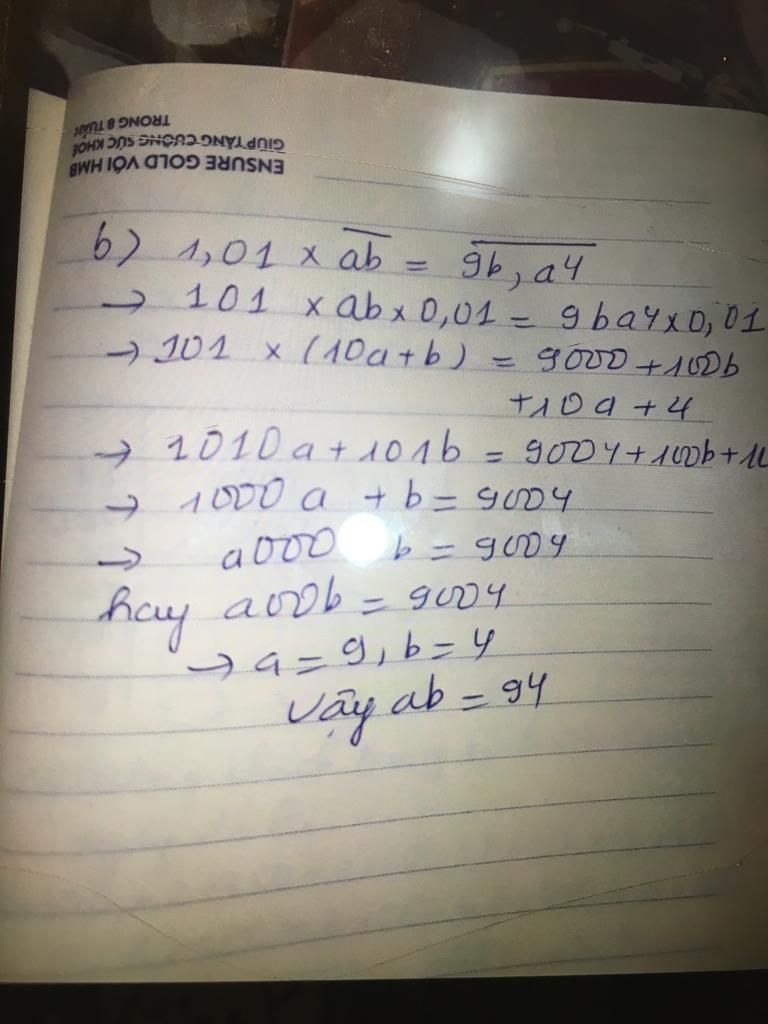 ENSURE GOLD VỚI HMB
GIÚP TĂNG CƯỜNG SỨC KHOẺ
TRONG 8 TUẦN
b) 1,01 × ab = 9b,a4
→ 101 × ab × 0,01 = 9ba4 × 0,01
→ 101 × (10a+b) = 9000 + 100b
+10a + 4
→ 1010a + 101b = 9004 + 100b + 1
→ 1000a + b = 9004
→ a000 b = 9004
hay a00b = 9004
→ a = 9, b = 4
Vậy ab = 94